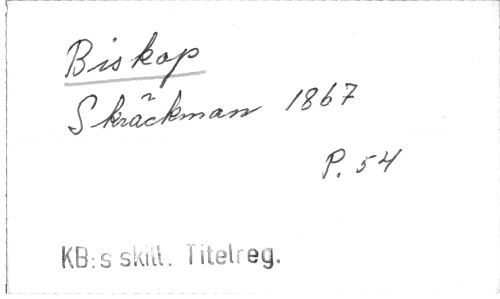 Biskop
Skräckman 1867
P. 54
KB:s skill. Titelreg.